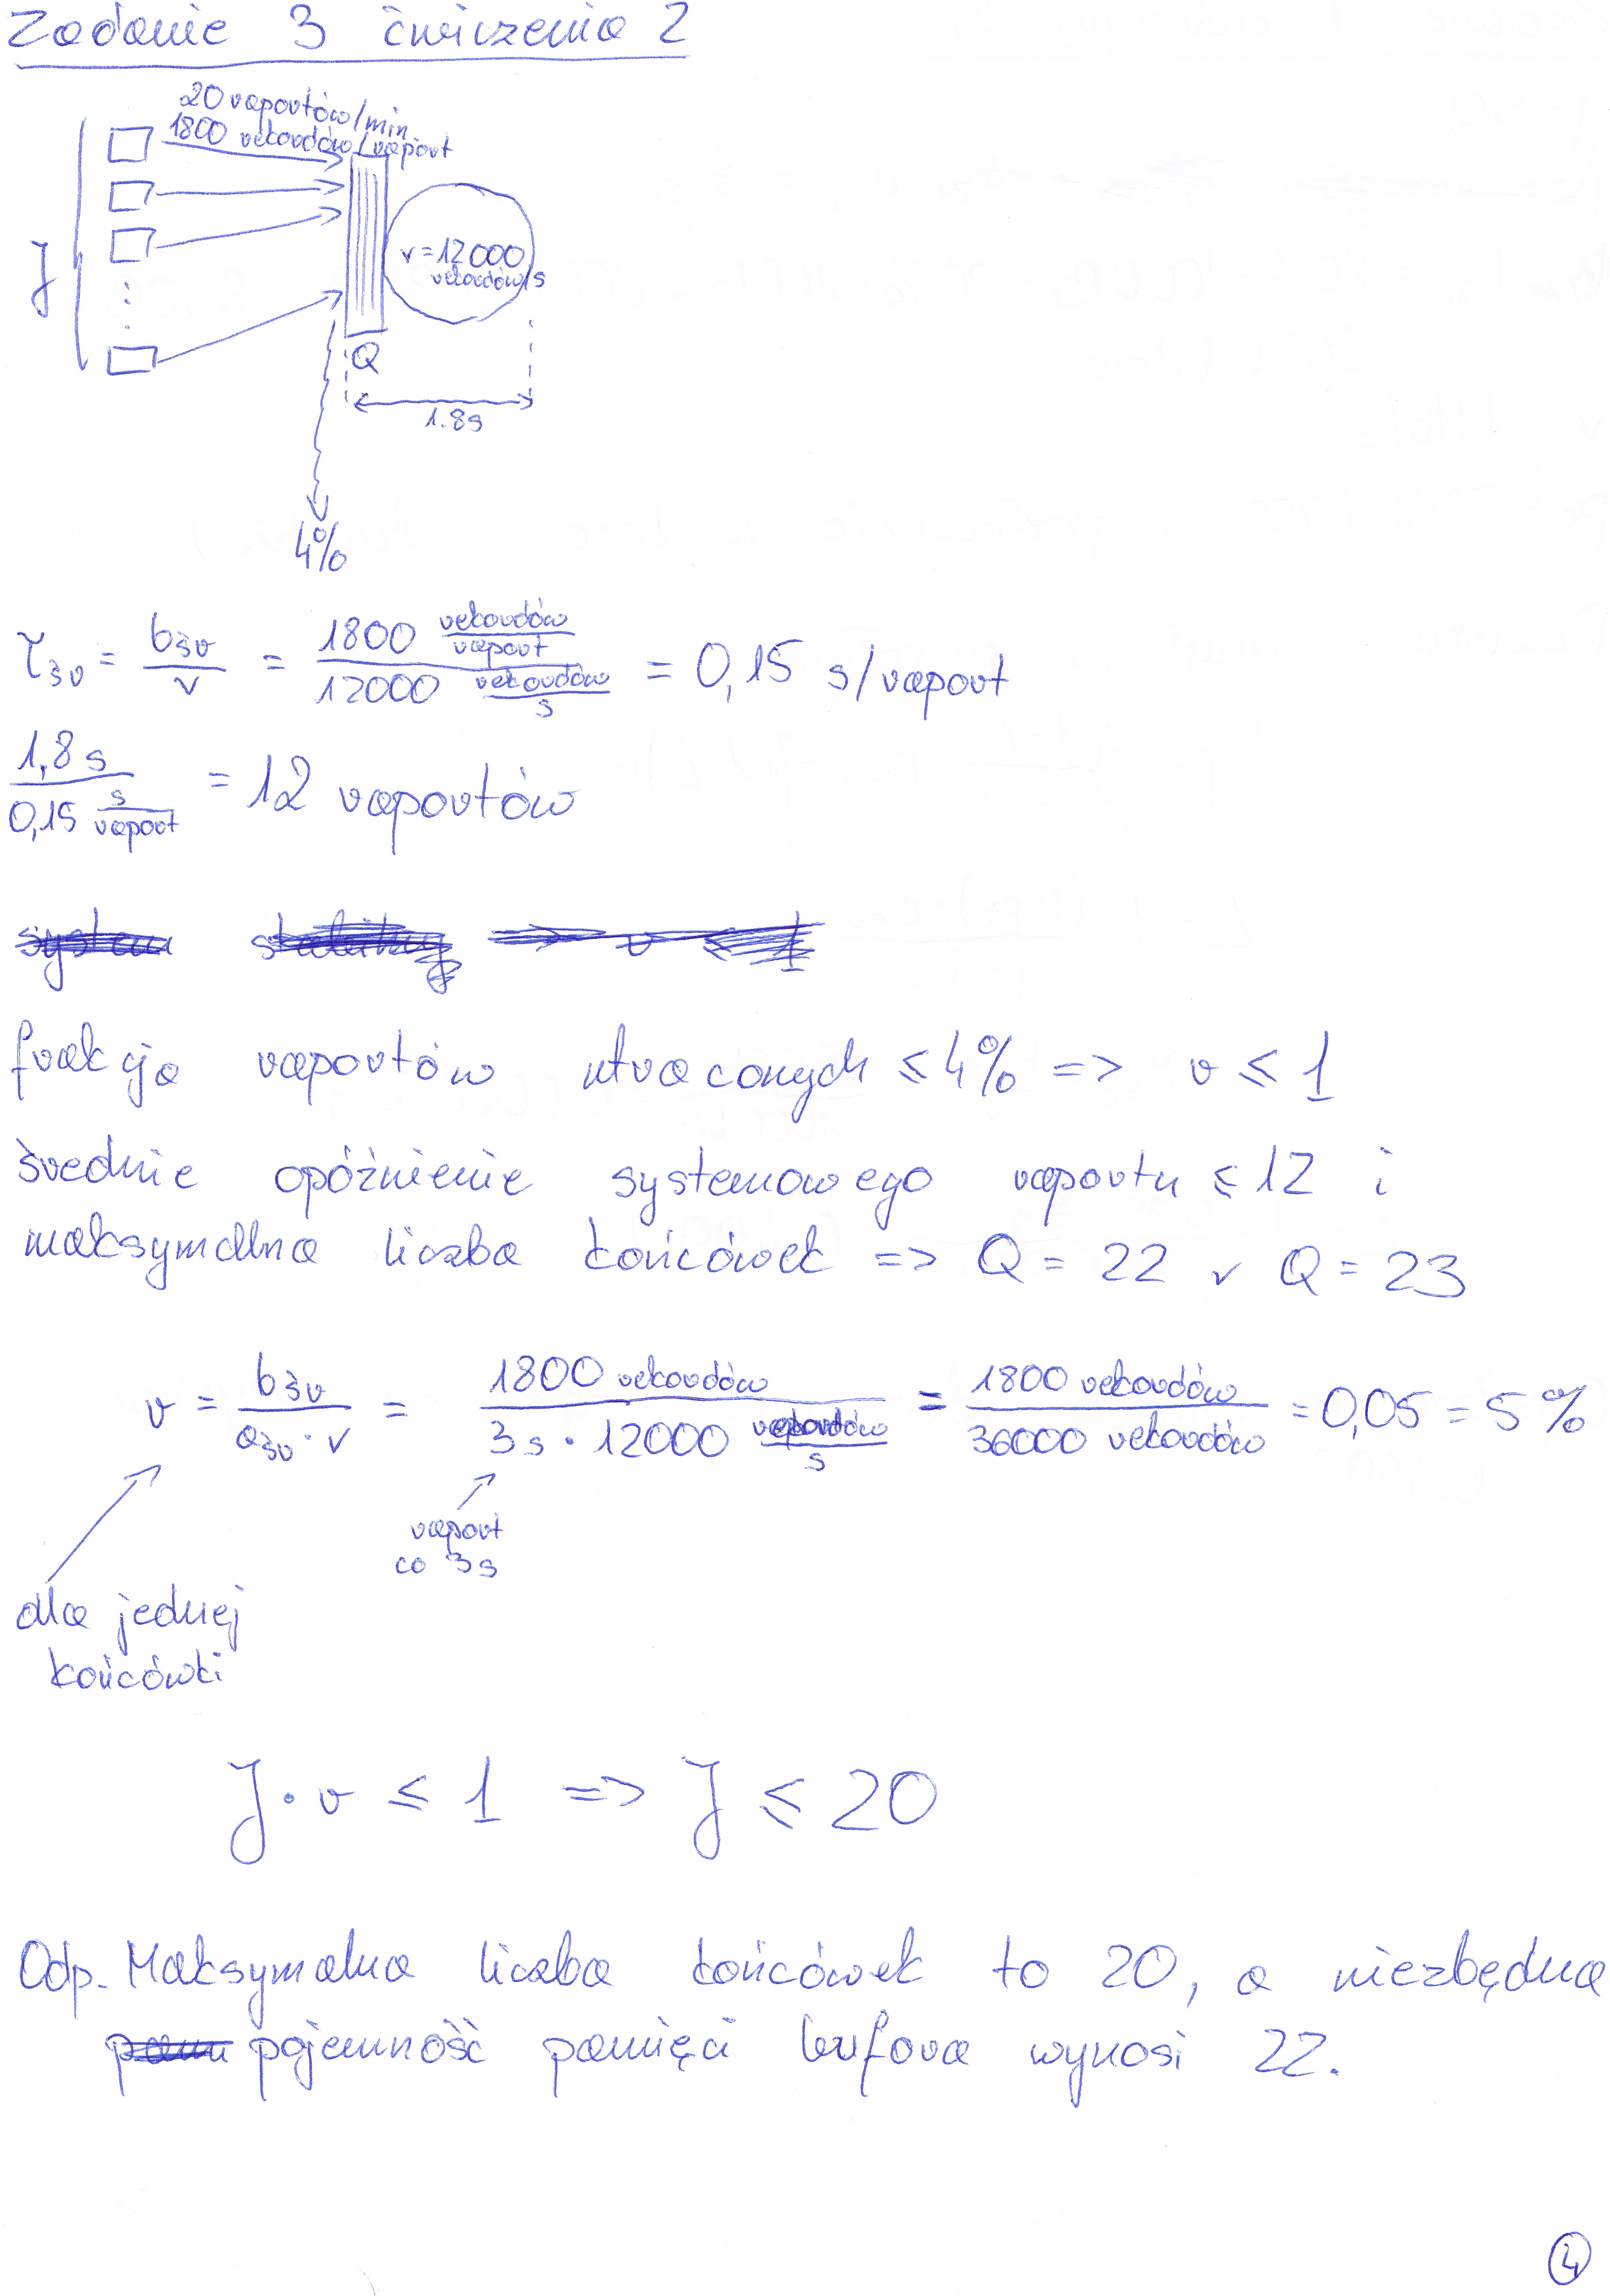 Zadanie 3 ćwiczenia 2
20 raportów/min
1800 rekordów/raport
J
v = 12000
rekordów/s
Q
1.8s
4%
τśr = bśr / v = 1800 rekordów/raport / 12000 rekordów/s = 0,15 s/raport
1,8 s / 0,15 s/raport = 12 raportów
frakcja raportów utraconych ≤ 4% => r ≤ 1
średnie opóźnienie systemowego raportu ≤ 12 i
maksymalna liczba końcówek => Q = 22 v Q = 23
r = bśr / aśr · v = 1800 rekordów / 3s · 12000 rekordów/s = 1800 rekordów / 36000 rekordów = 0,05 = 5%
raport
co 3s
dla jednej
końcówki
J · r ≤ 1 => J ≤ 20
Odp. Maksymalna liczba końcówek to 20, a niezbędna
pojemność pamięci bufora wynosi 22.
4